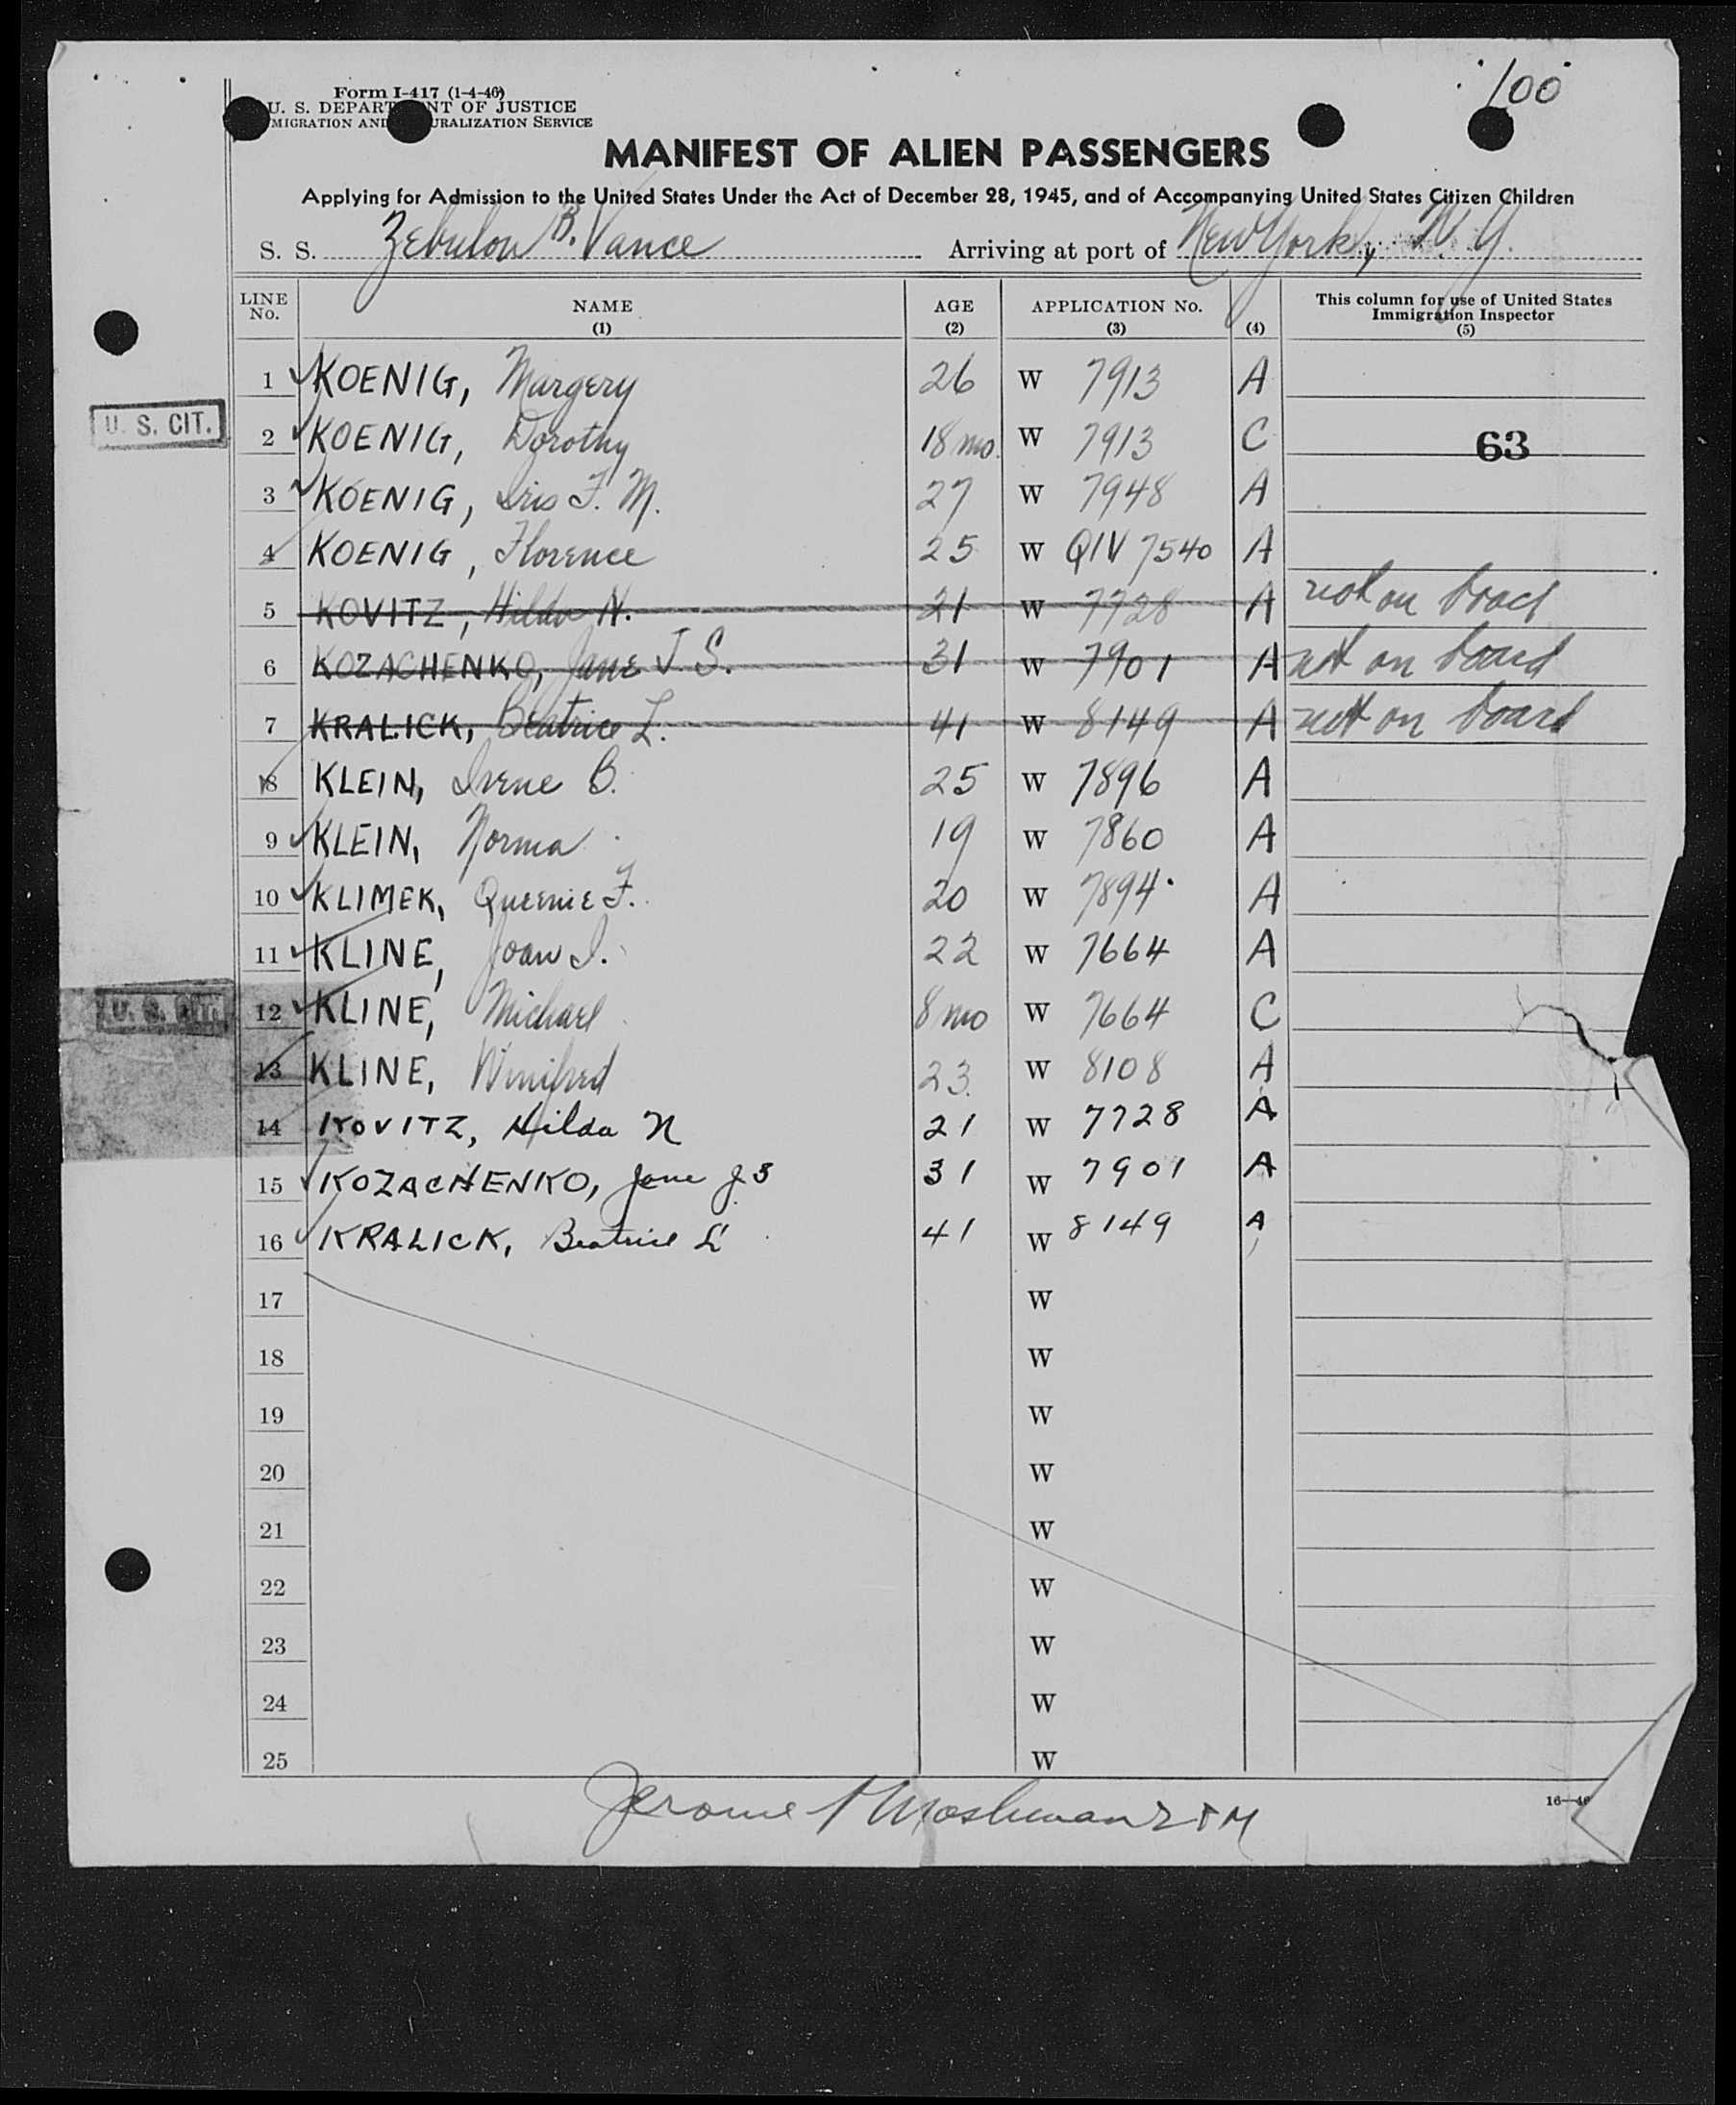 100
Form I-417 (1-4-46)
U. S. DEPARTMENT OF JUSTICE
IMMIGRATION AND NATURALIZATION SERVICE
MANIFEST OF ALIEN PASSENGERS
Applying for Admission to the United States Under the Act of December 28, 1945, and of Accompanying United States Citizen Children
S. S. Zebulon B. Vance Arriving at port of New York, N. Y.
LINE No. NAME (1) AGE (2) APPLICATION No. (3) (4) This column for use of United States Immigration Inspector (5)
1 KOENIG, Margery 26 W 7913 A
U. S. CIT. 2 KOENIG, Dorothy 18 mo. W 7913 C 63
3 KOENIG, Iris F. M. 27 W 7948 A
4 KOENIG, Florence 25 W QIV 7540 A
5 KOVITZ, Hilda N. 21 W 7728 A not on board
6 KOZACHENKO, Jane J S. 31 W 7901 A not on board
7 KRALICK, Beatrice L. 41 W 8149 A not on board
8 KLEIN, Irene B. 25 W 7896 A
9 KLEIN, Norma 19 W 7860 A
10 KLIMEK, Queenie F. 20 W 7894 A
11 KLINE, Joan I. 22 W 7664 A
U. S. CIT. 12 KLINE, Michael 8 mo W 7664 C
13 KLINE, Winifred 23 W 8108 A
14 KOVITZ, Hilda N 21 W 7728 A
15 KOZACHENKO, Jane J S 31 W 7901 A
16 KRALICK, Beatrice L 41 W 8149 A
17 W
18 W
19 W
20 W
21 W
22 W
23 W
24 W
25 W
Jerome
16—46